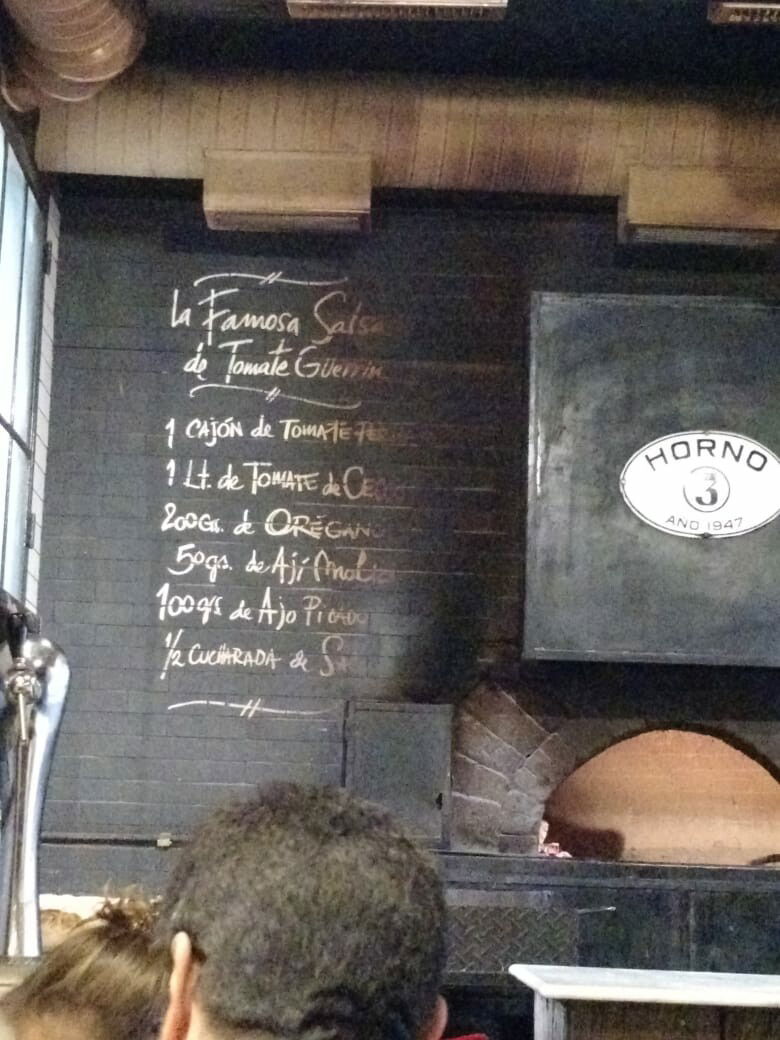 La Famosa Salsa
de Tomate Güerrin
1 CAJÓN de TOMATE
1 Lt. de TOMATE de
200Gs. de ORÉGANO
50gs. de Ají Molido
100gs de Ajo PICADO
1/2 CUCHARADA de
HORNO
3
AÑO 1947